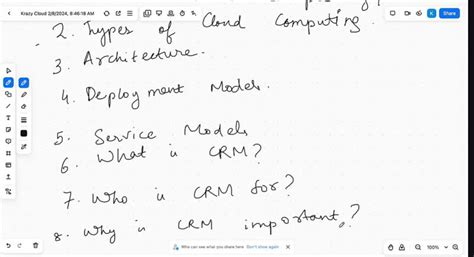 Krazy Cloud 2/8/2024, 8:46:18 AM
K
Share
2. Types of Cloud Computing.
3. Architecture.
4. Deployment Models.
5. Service Models
6. What is CRM?
7. Who is CRM for?
8. Why is CRM important?
Who can see what you share here Don't show again
100%